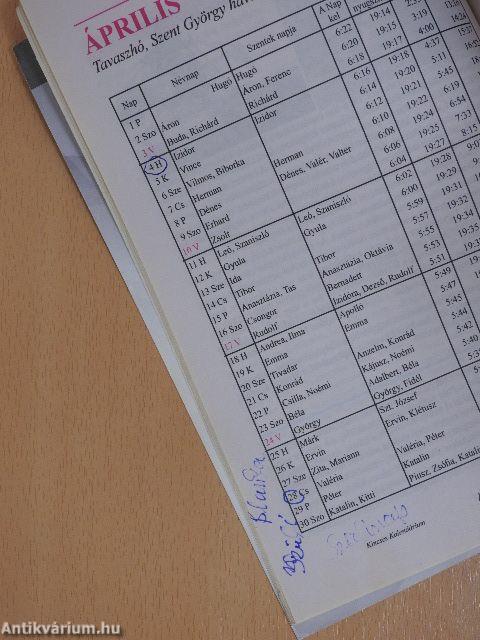 ÁPRILIS
Tavaszhó, Szent György hava
Nap Névnap Szentek napja A Nap kel nyugszik
1 P Hugó Hugó 6:22 19:14
2 Szo Áron Áron, Ferenc 6:20 19:15 3:19
3 V Buda, Richárd Richárd 6:18 19:17 4:00
4 H Izidor Izidor 6:16 19:18 4:37
5 K Vince 6:14 19:20 5:11
6 Sze Vilmos, Biborka 6:12 19:21 5:45
7 Cs Herman Herman 6:10 19:22 6:19
8 P Dénes Dénes, Valér, Valter 6:08 19:24 6:54
9 Szo Erhard 6:06 19:25 7:33
10 V Zsolt 6:04 19:27 8:15
11 H Leó, Szaniszló Leó, Szaniszló 6:02 19:28
12 K Gyula Gyula 6:00 19:29
13 Sze Ida 5:59 19:31
14 Cs Tibor Tibor 5:57 19:32
15 P Anasztázia, Tas Anasztázia, Oktávia 5:55 19:34
16 Szo Csongor Bernadett 5:53 19:35
17 V Rudolf Izidora, Dezső, Rudolf 5:51
18 H Andrea, Ilma Apolló 5:49
19 K Emma Emma 5:47
20 Sze Tivadar 5:45
21 Cs Konrád Anzelm, Konrád 5:44
22 P Csilla, Noémi Kájusz, Noémi 5:42
23 Szo Béla Adalbert, Béla 5:40
24 V György György, Fidél
25 H Márk Szt. József
26 K Ervin Ervin, Klétusz
27 Sze Zita, Mariann
28 Cs Valéria Valéria, Péter
29 P Péter Katalin
30 Szo Katalin, Kitti Piusz, Zsófia, Katalin
Kincses Kalendárium
Antikvárium.hu